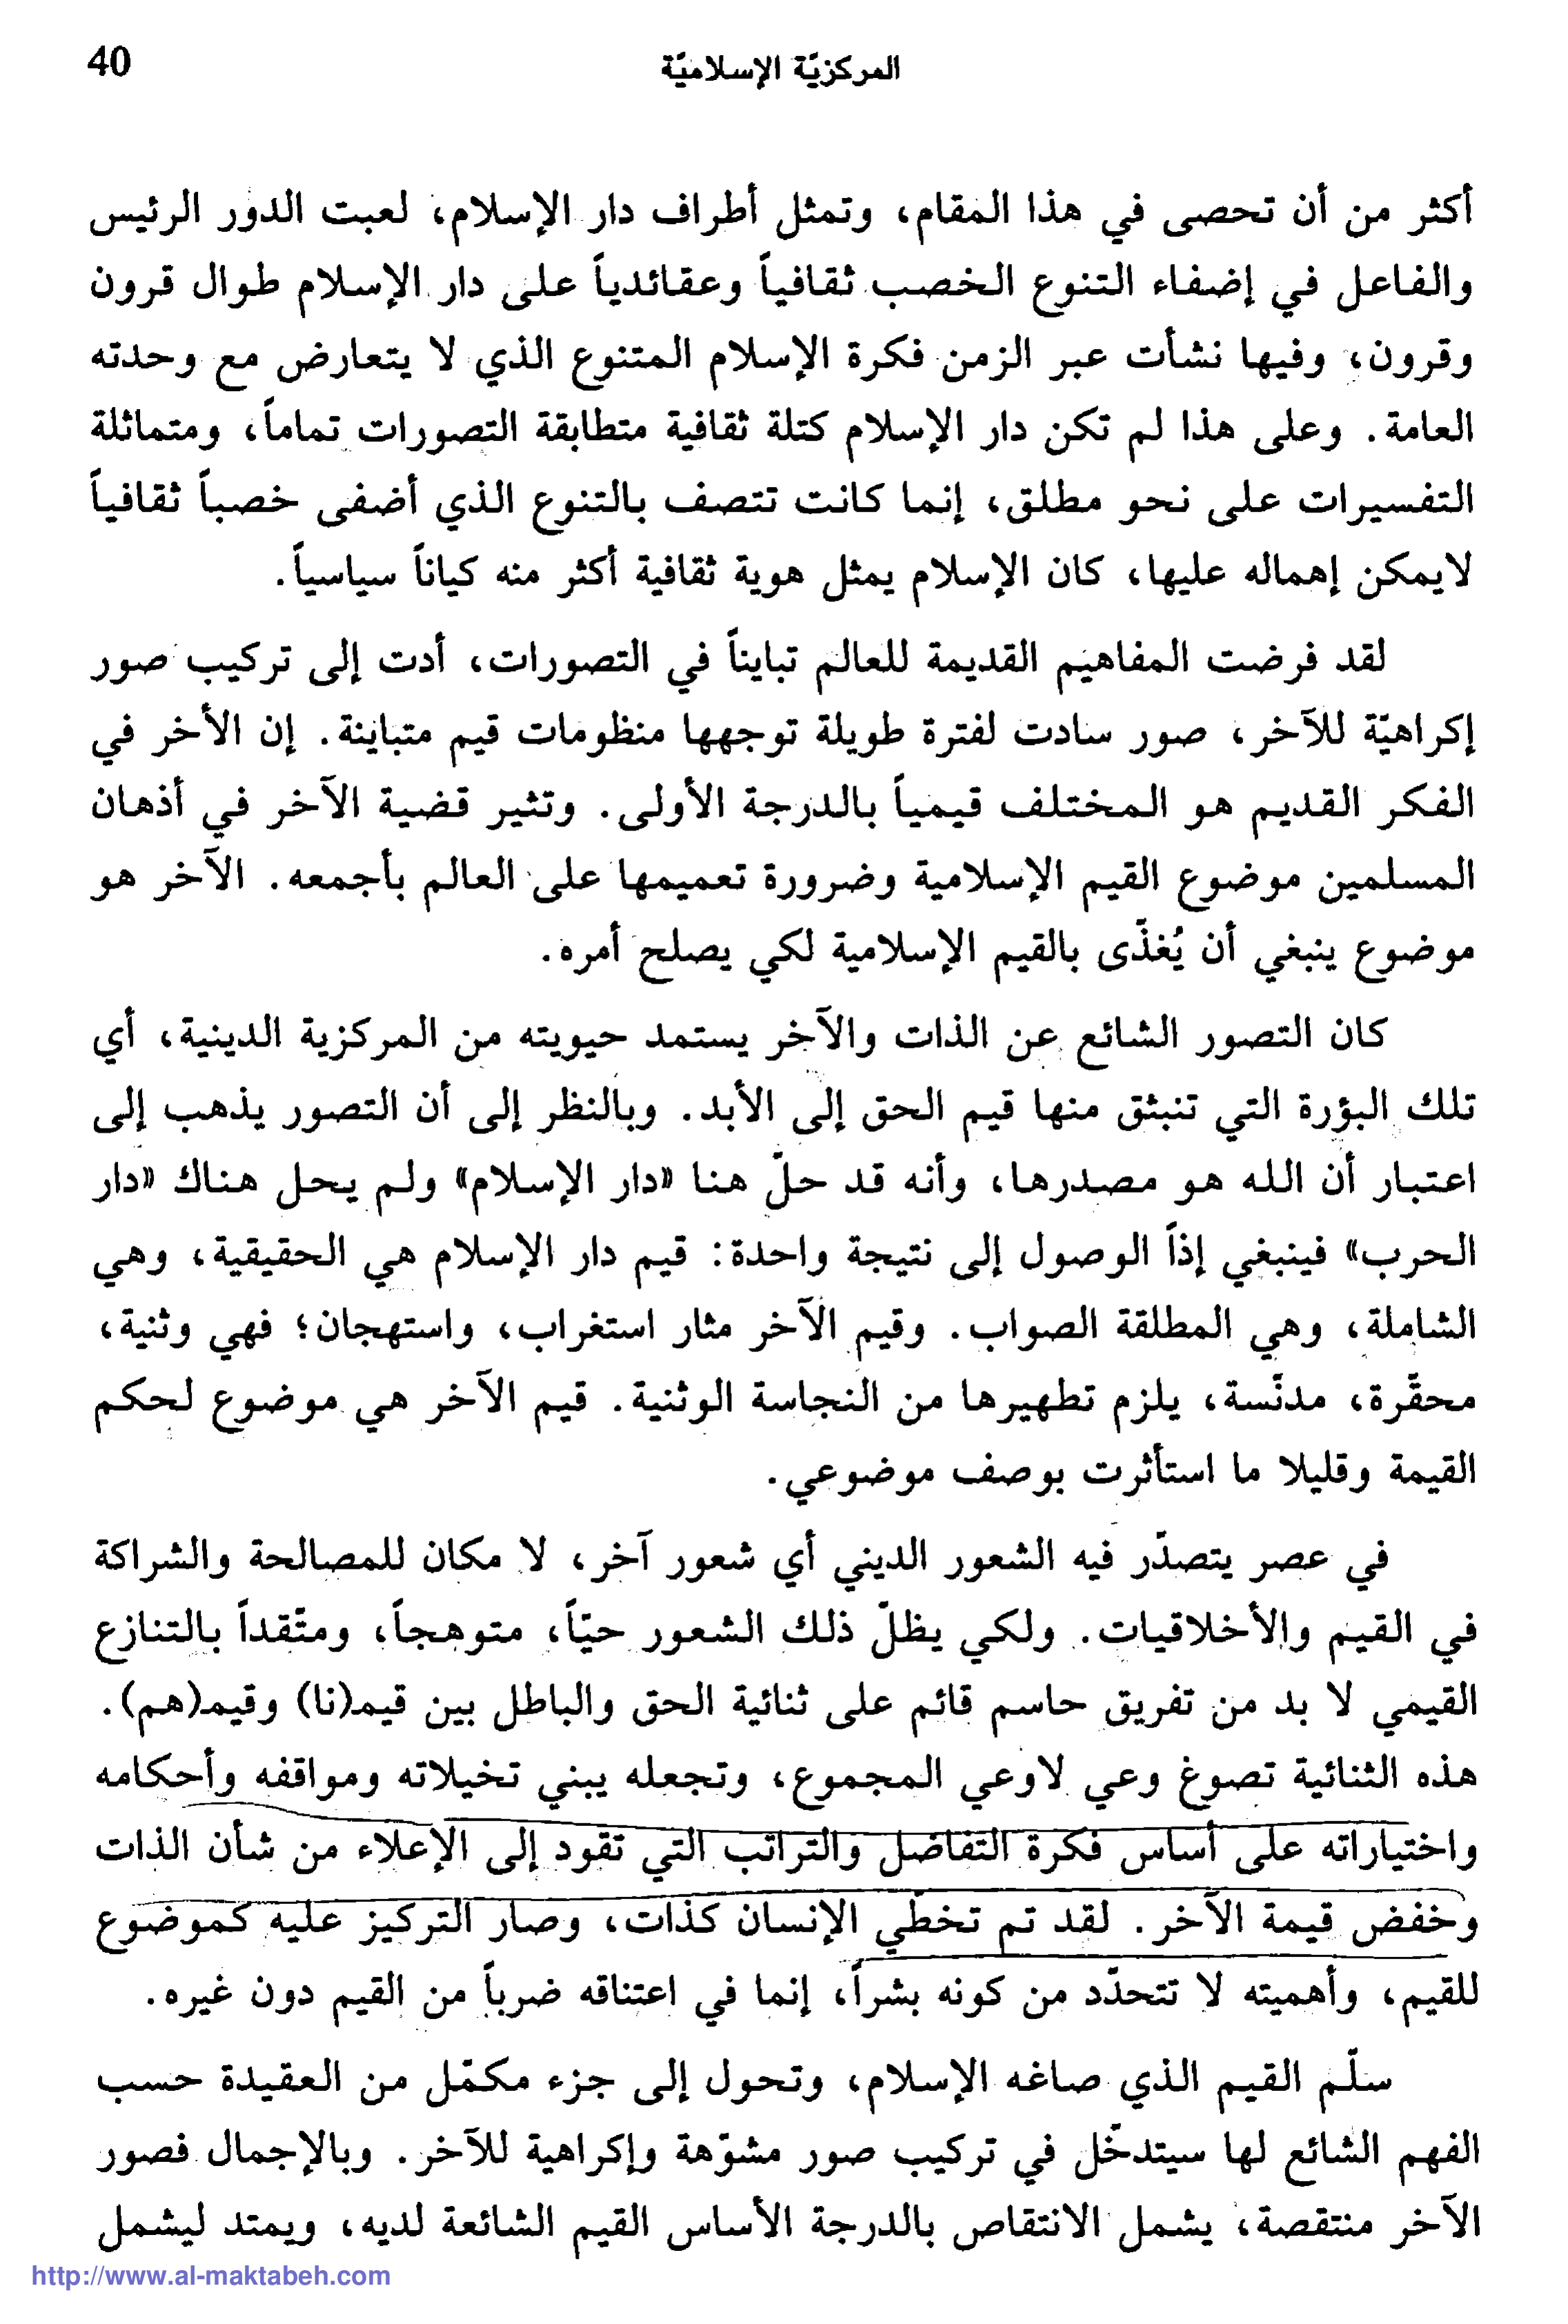 المركزيّة الإسلاميّة 40
أكثر من أن تحصى في هذا المقام، وتمثل أطراف دار الإسلام، لعبت الدور الرئيس
والفاعل في إضفاء التنوع الخصب ثقافياً وعقائدياً على دار الإسلام طوال قرون
وقرون، وفيها نشأت عبر الزمن فكرة الإسلام المتنوع الذي لا يتعارض مع وحدته
العامة. وعلى هذا لم تكن دار الإسلام كتلة ثقافية متطابقة التصورات تماماً، ومتماثلة
التفسيرات على نحو مطلق، إنما كانت تتصف بالتنوع الذي أضفى خصباً ثقافياً
لايمكن إهماله عليها، كان الإسلام يمثل هوية ثقافية أكثر منه كياناً سياسياً.
لقد فرضت المفاهيم القديمة للعالم تبايناً في التصورات، أدت إلى تركيب صور
إكراهيّة للآخر، صور سادت لفترة طويلة توجهها منظومات قيم متباينة. إن الأخر في
الفكر القديم هو المختلف قيمياً بالدرجة الأولى. وتثير قضية الآخر في أذهان
المسلمين موضوع القيم الإسلامية وضرورة تعميمها على العالم بأجمعه. الآخر هو
موضوع ينبغي أن يُغذّى بالقيم الإسلامية لكي يصلح أمره.
كان التصور الشائع عن الذات والآخر يستمد حيويته من المركزية الدينية، أي
تلك البؤرة التي تنبثق منها قيم الحق إلى الأبد. وبالنظر إلى أن التصور يذهب إلى
اعتبار أن الله هو مصدرها، وأنه قد حلّ هنا «دار الإسلام» ولم يحل هناك «دار
الحرب» فينبغي إذاً الوصول إلى نتيجة واحدة: قيم دار الإسلام هي الحقيقية، وهي
الشاملة، وهي المطلقة الصواب. وقيم الآخر مثار استغراب، واستهجان؛ فهي وثنية،
محقَّرة، مدنَّسة، يلزم تطهيرها من النجاسة الوثنية. قيم الآخر هي موضوع لحكم
القيمة وقليلا ما استأثرت بوصف موضوعي.
في عصر يتصدّر فيه الشعور الديني أي شعور آخر، لا مكان للمصالحة والشراكة
في القيم والأخلاقيات. ولكي يظلّ ذلك الشعور حيّاً، متوهجاً، ومتّقداً بالتنازع
القيمي لا بد من تفريق حاسم قائم على ثنائية الحق والباطل بين قيمـ(نا) وقيمـ(هم).
هذه الثنائية تصوغ وعي لاوعي المجموع، وتجعله يبني تخيلاته ومواقفه وأحكامه
واختياراته على أساس فكرة التفاضل والتراتب التي تقود إلى الإعلاء من شأن الذات
وخفض قيمة الآخر. لقد تم تخطّي الإنسان كذات، وصار التركيز عليه كموضوع
للقيم، وأهميته لا تتحدّد من كونه بشراً، إنما في اعتناقه ضرباً من القيم دون غيره.
سلّم القيم الذي صاغه الإسلام، وتحول إلى جزء مكمّل من العقيدة حسب
الفهم الشائع لها سيتدخّل في تركيب صور مشوّهة وإكراهية للآخر. وبالإجمال فصور
الآخر منتقصة، يشمل الانتقاص بالدرجة الأساس القيم الشائعة لديه، ويمتد ليشمل
http://www.al-maktabeh.com